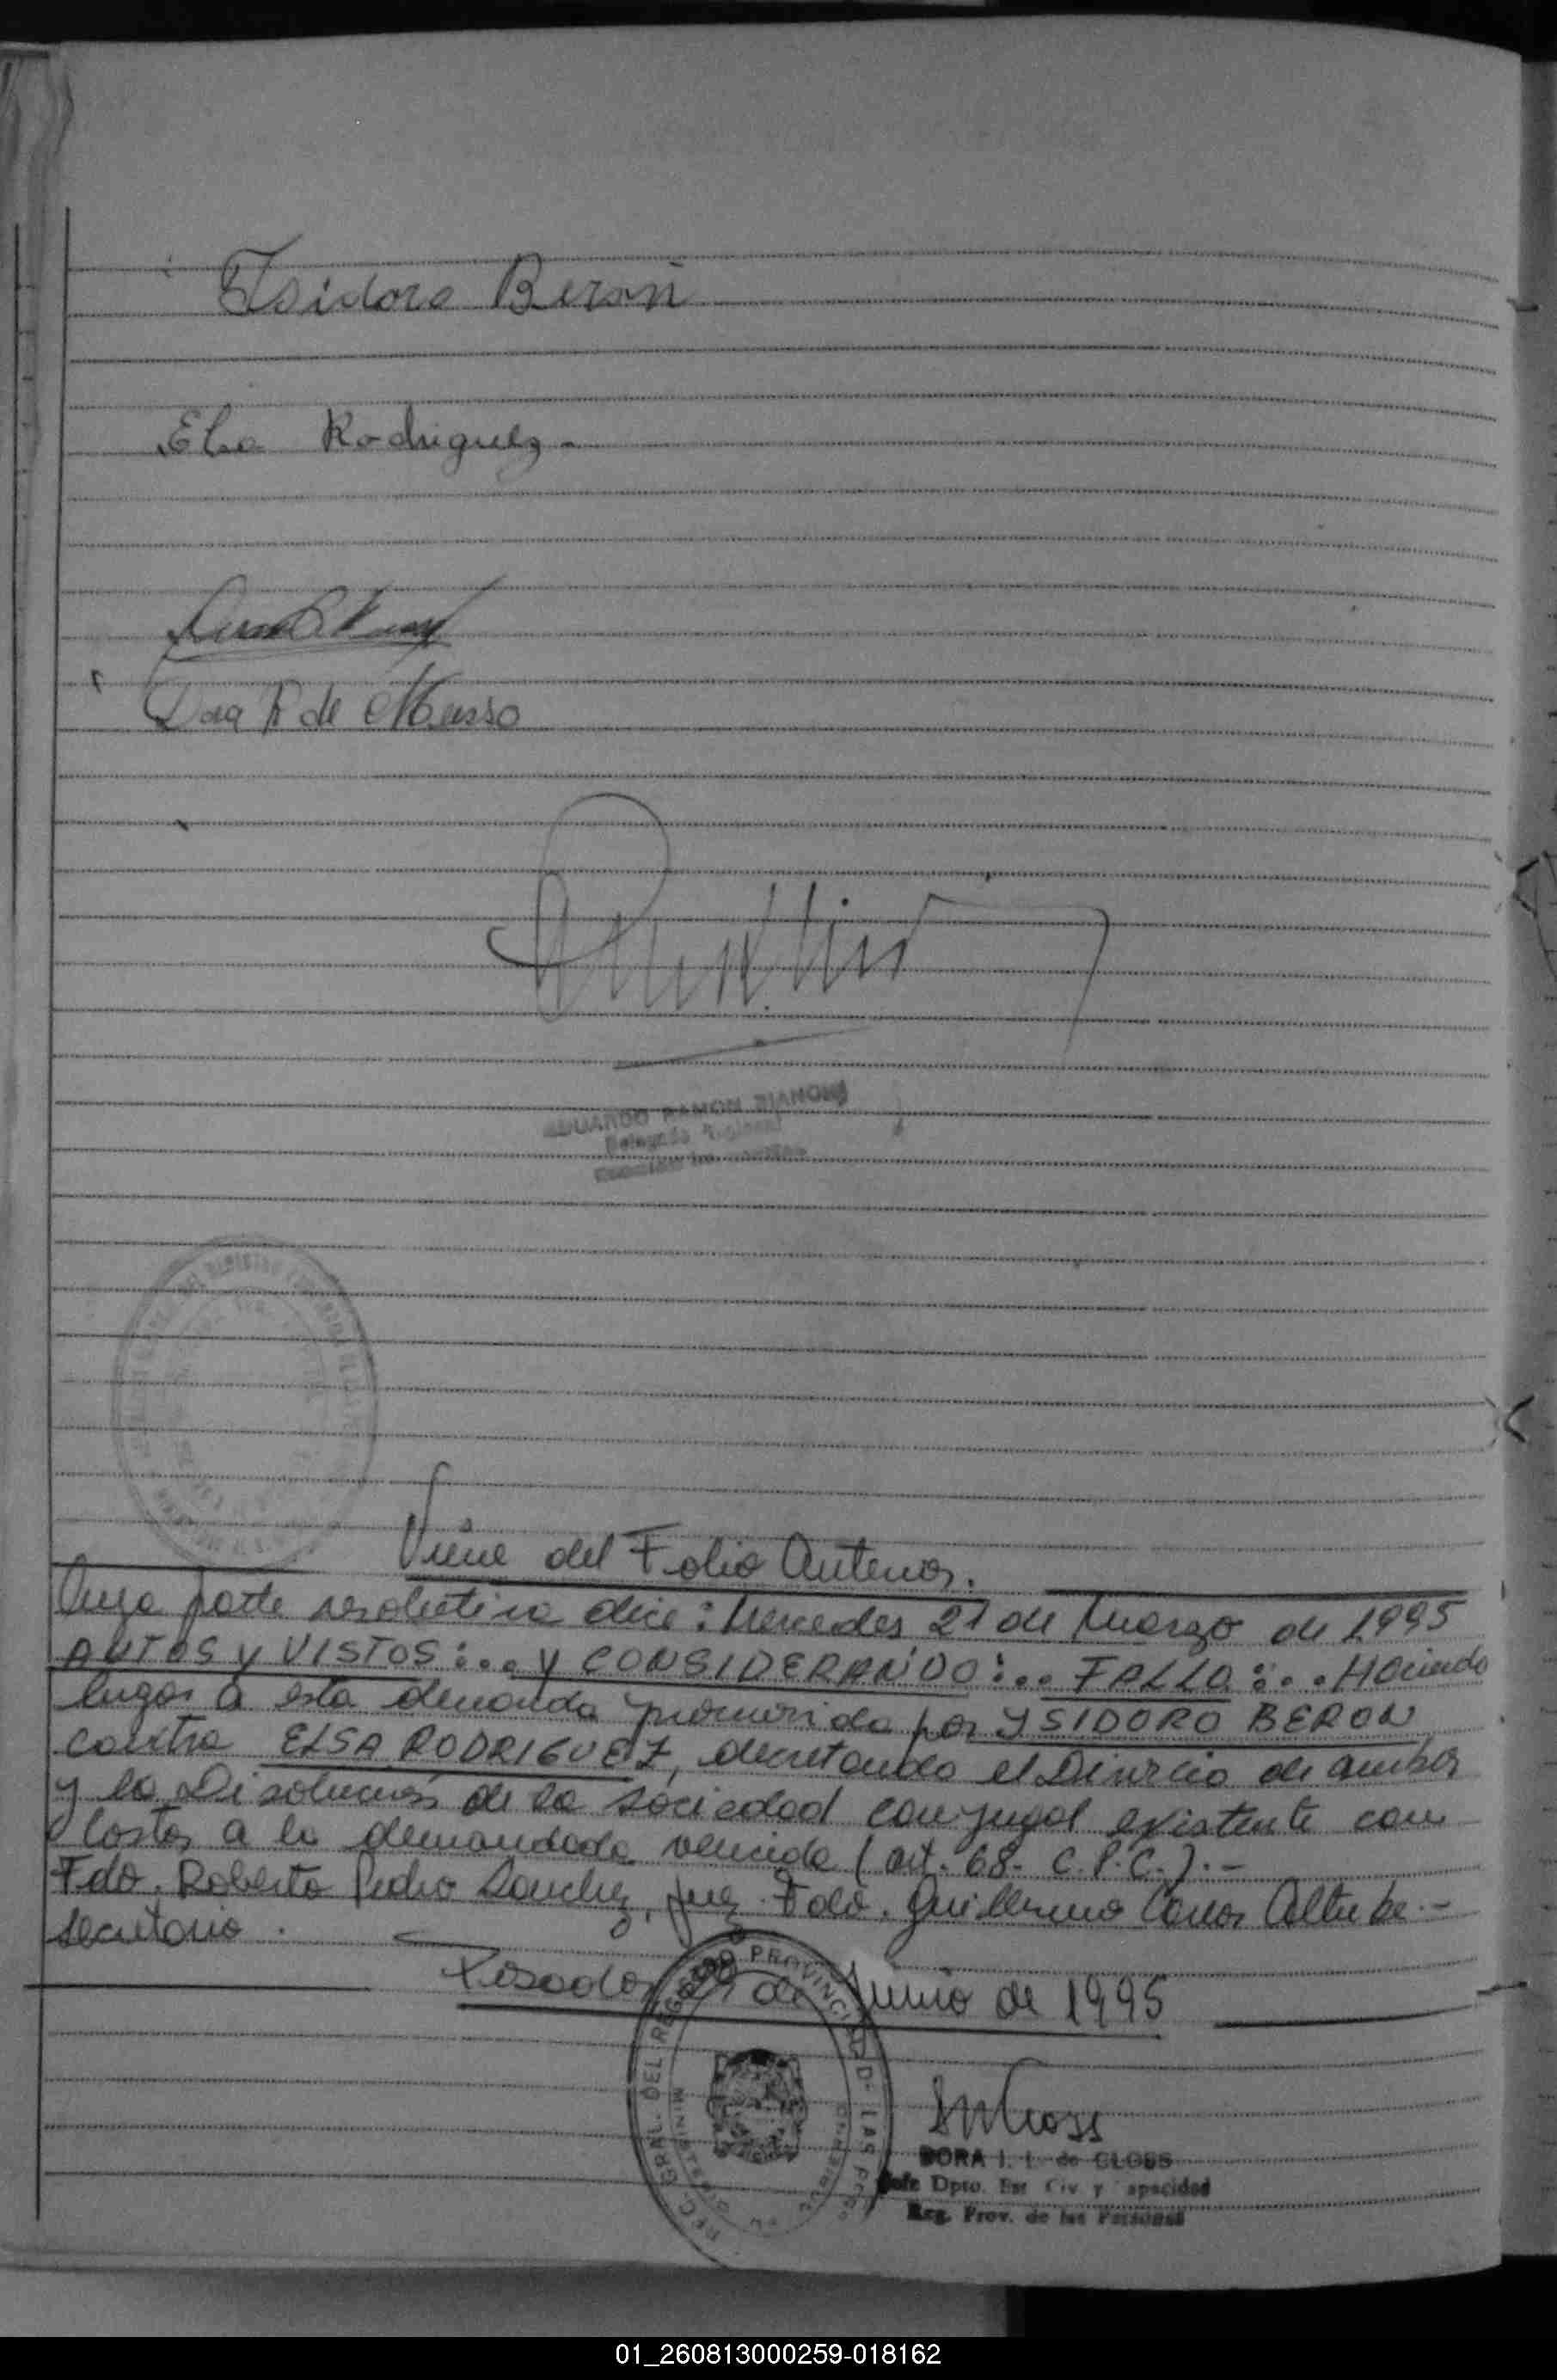 Isidoro Beron
Elsa Rodriguez.
Dora R de Musso
EDUARDO RAMON BIANCHI
Delegado Regional
Viene del Folio Anterior.
Cuya parte resolutiva dice: Mercedes 21 de Marzo de 1995
AUTOS y VISTOS:... y CONSIDERANDO:... FALLO:... Haciendo
lugar a esta demanda promovida por YSIDORO BERON
contra ELSA RODRIGUEZ, decretando el Divorcio de ambos
y la Disolución de la sociedad conyugal existente con
Costas a la demandada vencida (art. 68. C.P.C.).-
Fdo. Roberto Pedro Sanchez, Juez. Fdo. Guillermo Carlos Altube.-
Secretario.
Posadas, 29 de Junio de 1995
GRAL. DEL REGISTRO PROVINCIAL D. LAS PERS
MINISTERIO
DORA I. L. de CLOSS
Jefe Dpto. Est Civ y Capacidad
Reg. Prov. de las Personas
01_260813000259-018162